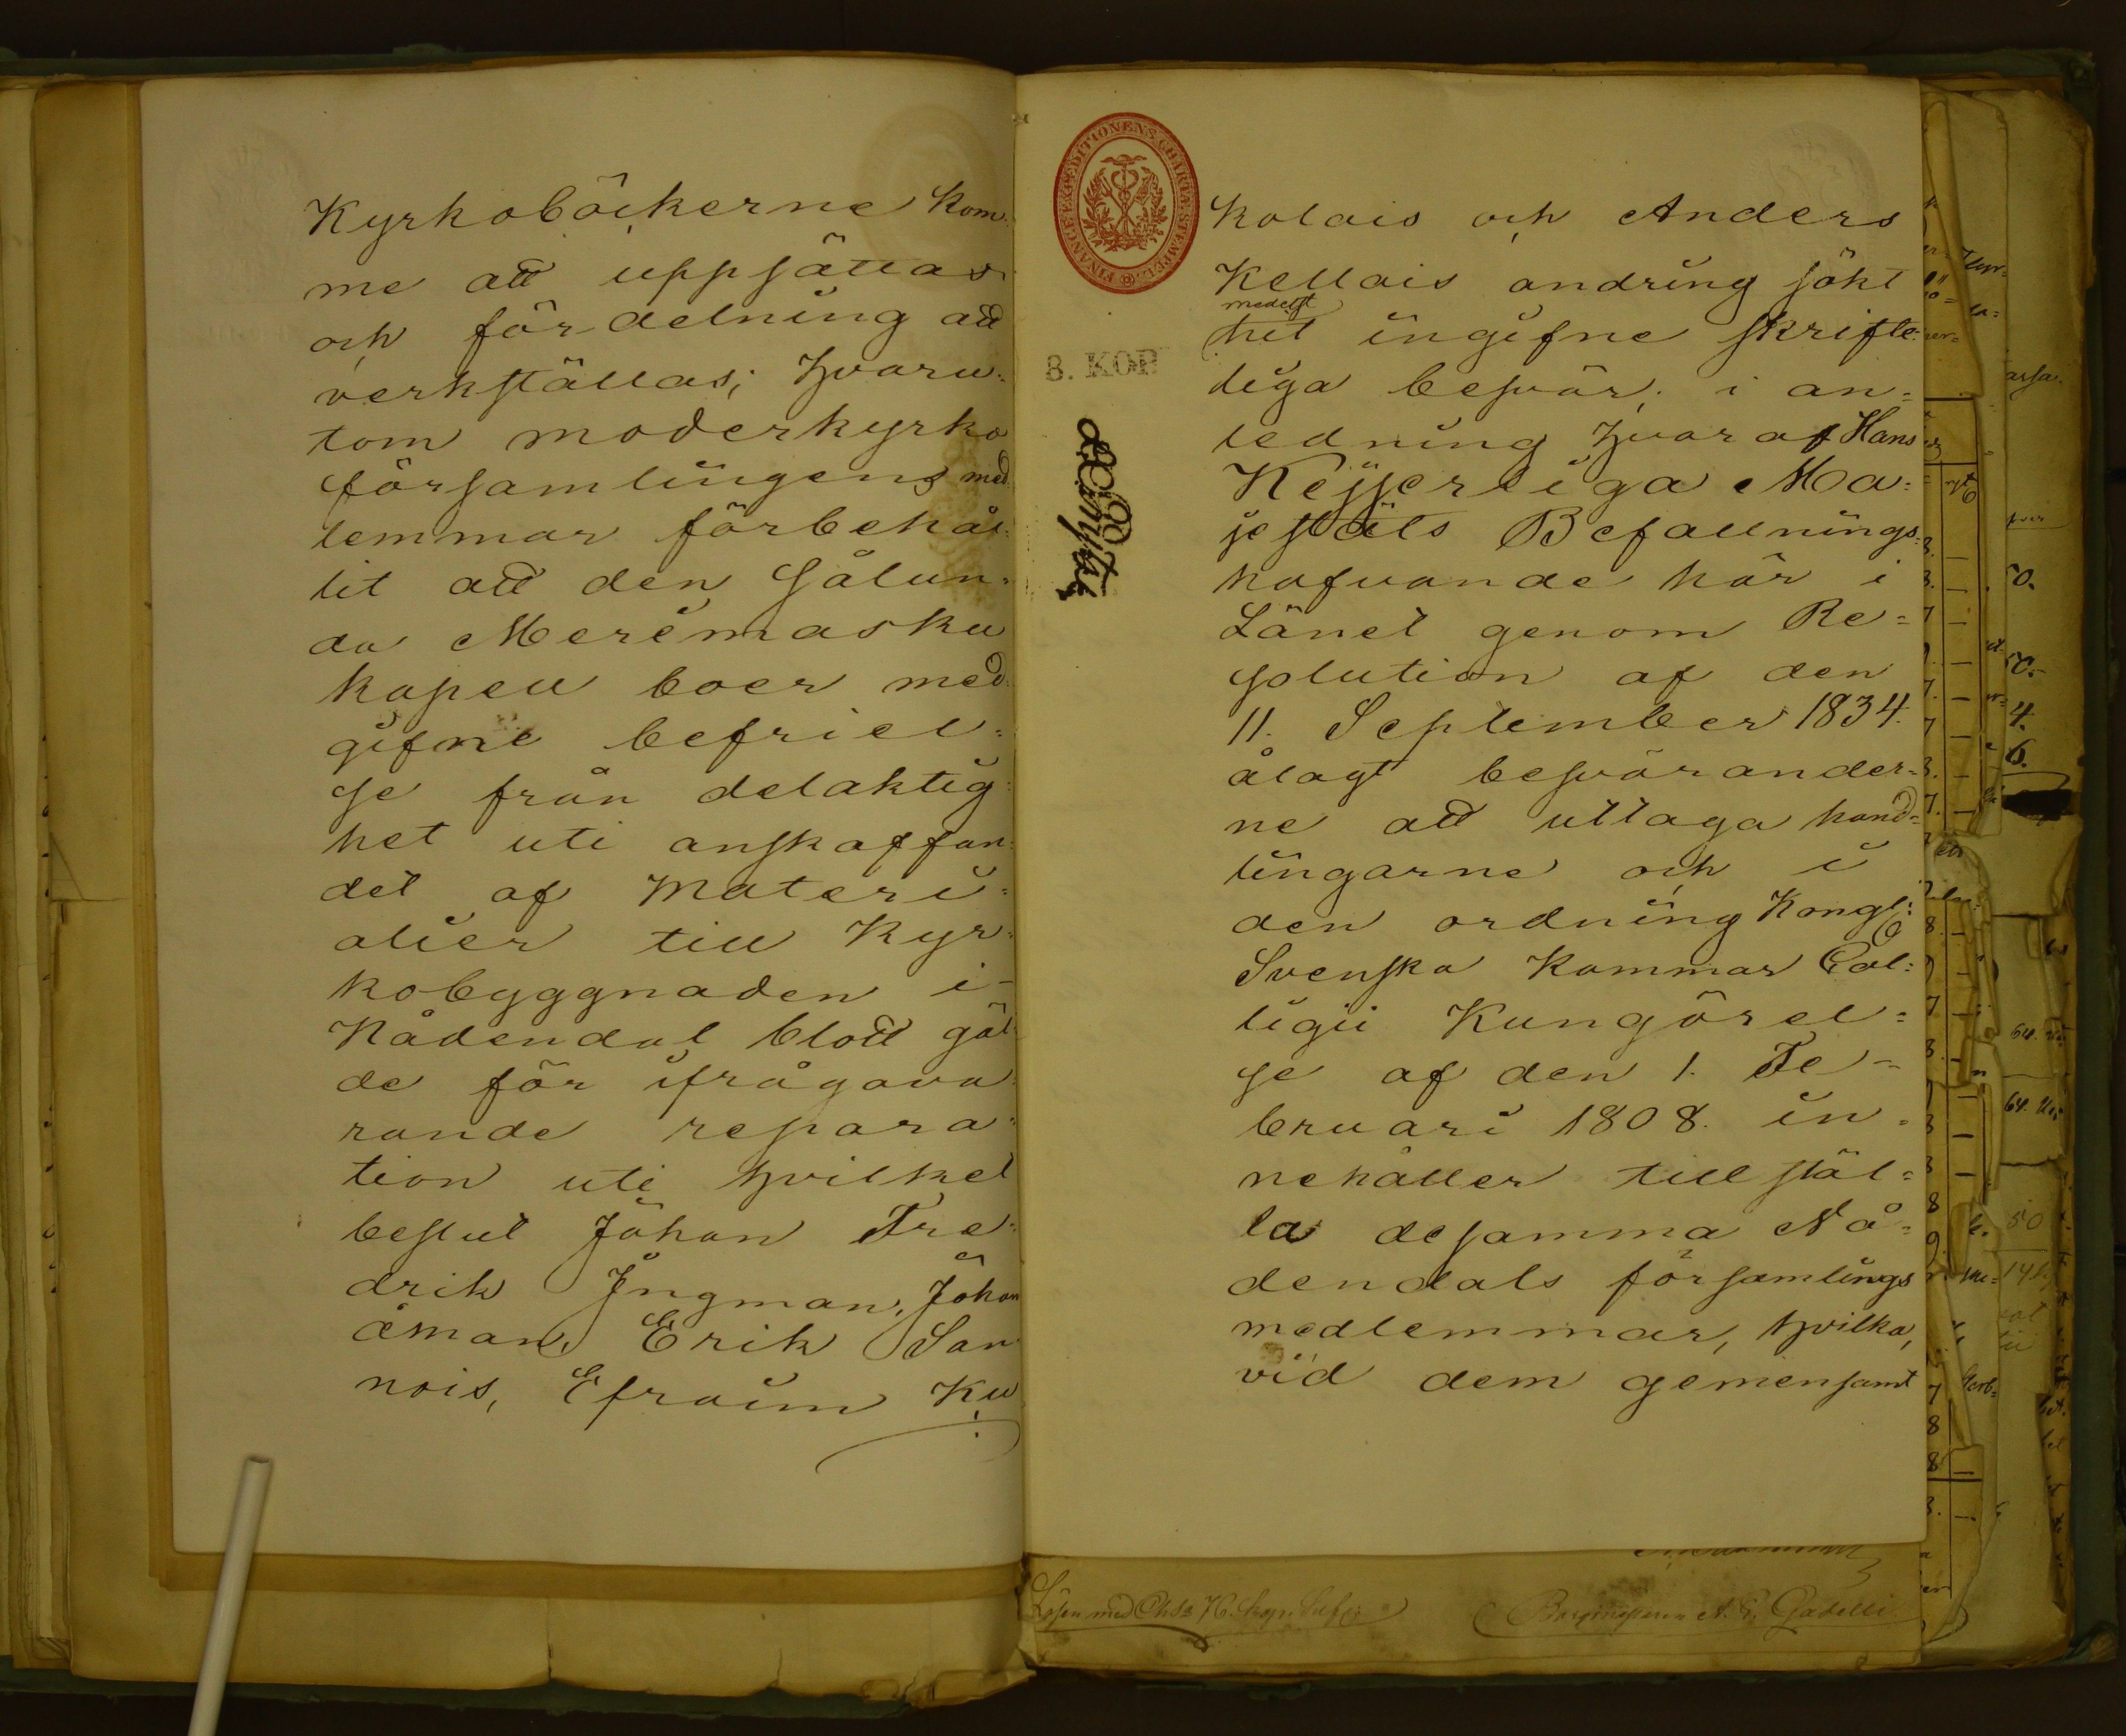 Kyrkoböckerne kom-
me att uppsättas
och fördelning att
verkställas; hvaru=
tom moderkyrko
församlingens med
lemmar förbehål=
lit att den sålun=
da Merimasku
kapell boer med=
gifne befriel=
se från delaktig=
het uti anskaffan=
det af materi=
alier till Kyr=
kobyggnaden i
Nådendal blott gäl
de för ifrågava
rande repara=
tion uti hvilket
beslut Johan Fre=
drik Ingman, Johan
Åman, Erik San
nois, Efraim Ku
FINANCE-EXPEDITIONENS CHARTÆ-STEMPEL
8. KOP
kolais och Anders
Kellais ändring sökt
medelst
hit ingifne skrifte=
liga besvär; i an=
ledning hvaraf Hans
Kejserliga Ma=
jestäts Befallnings=
hafvande här i
Länet genom Re=
solution af den
11. September 1834.
ålagt besvärander=
ne att uttaga hand=
lingarne och i
den ordning Kongl:
Svenska Kammar Col=
legii Kungörel=
se af den 1. Fe=
bruari 1808. in=
nehåller tillstäl=
la desamma Nå=
dendals församlings
medlemmar, hvilka,
vid dem gemensamt